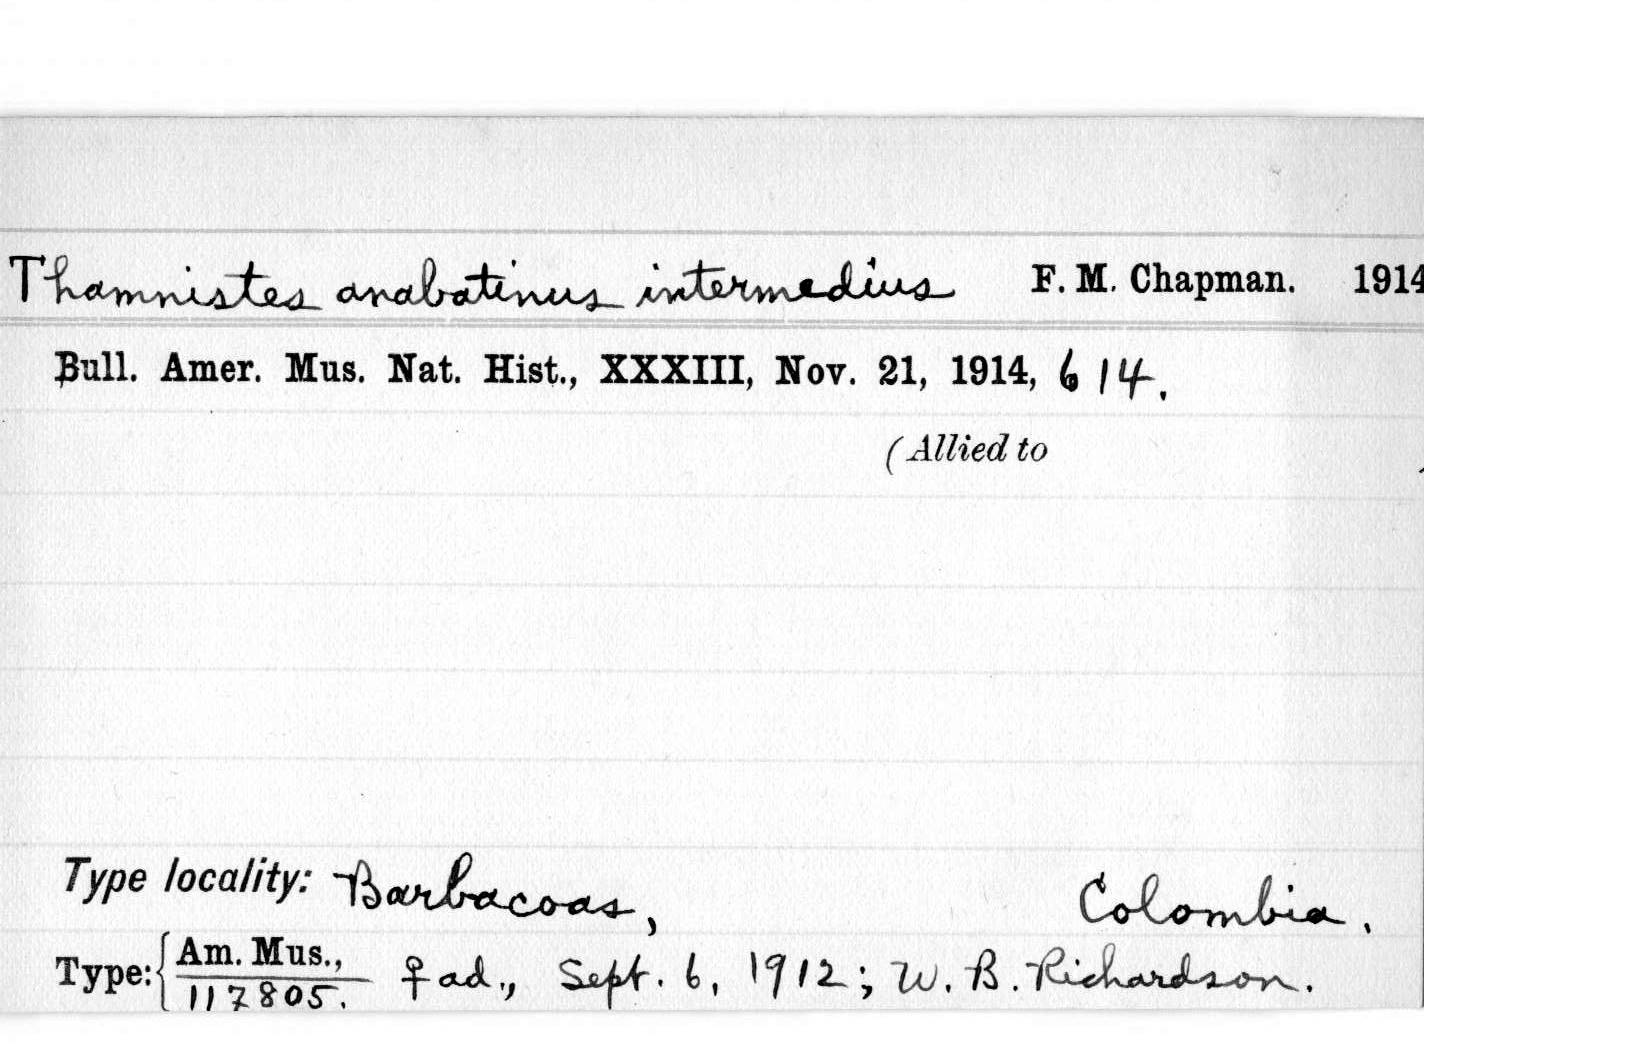 Thamnistes anabatinus intermedius F. M. Chapman. 1914
Bull. Amer. Mus. Nat. Hist., XXXIII, Nov. 21, 1914, 614.
(Allied to
Type locality: Barbacoas, Colombia.
Type: { Am. Mus., 117805. ♀ ad., Sept. 6, 1912; W. B. Richardson.